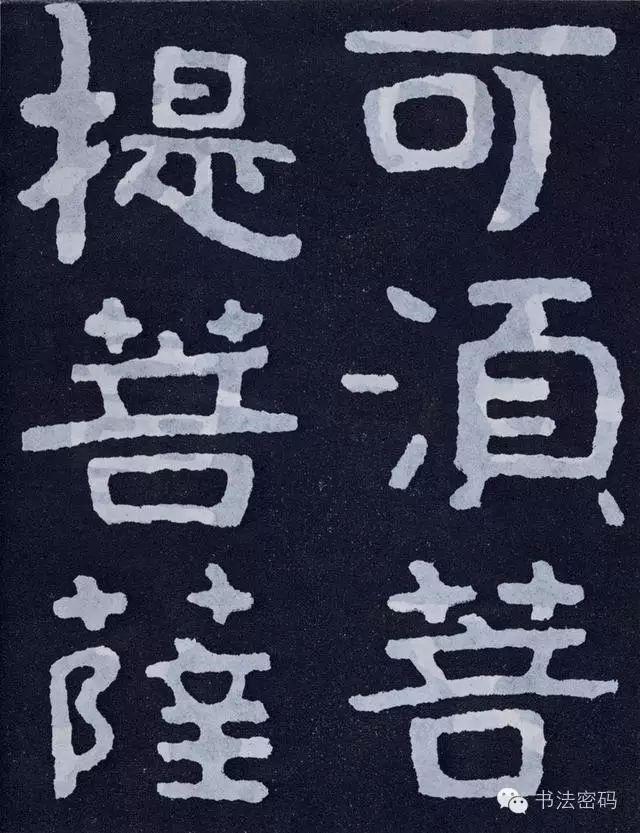 可湏菩
提菩薩
书法密码